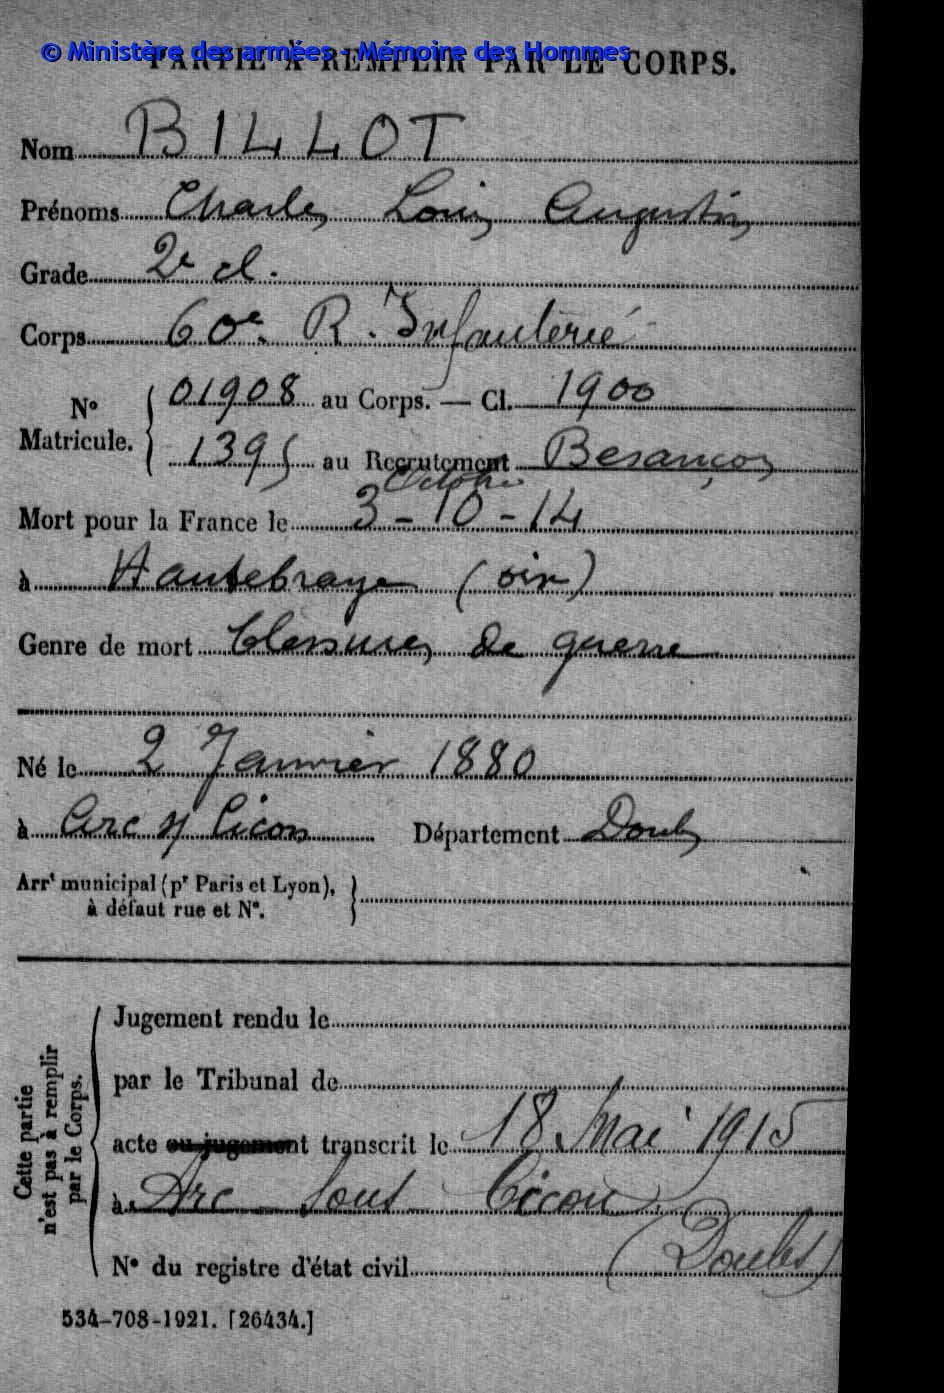 © Ministère des armées - Mémoire des Hommes
PARTIE À REMPLIR PAR LE CORPS.
Nom BILLOT
Prénoms Charles Louis Augustin
Grade 2e cl.
Corps 60e R. Infanterie
N° Matricule. 01908 au Corps. — Cl. 1900
1395 au Recrutement Besançon
Octobre
Mort pour la France le 3-10-14
à Hautebraye (oise)
Genre de mort blessures de guerre
Né le 2 Janvier 1880
à Arc s/ Cicon Département Doubs
Arrt municipal (pr Paris et Lyon),
à défaut rue et N°.
Cette partie
n'est pas à remplir
par le Corps.
Jugement rendu le
par le Tribunal de
acte ou jugement transcrit le 18 Mai 1915
à Arc sous Cicon
(Doubs)
N° du registre d'état civil
534-708-1921. [26434.]